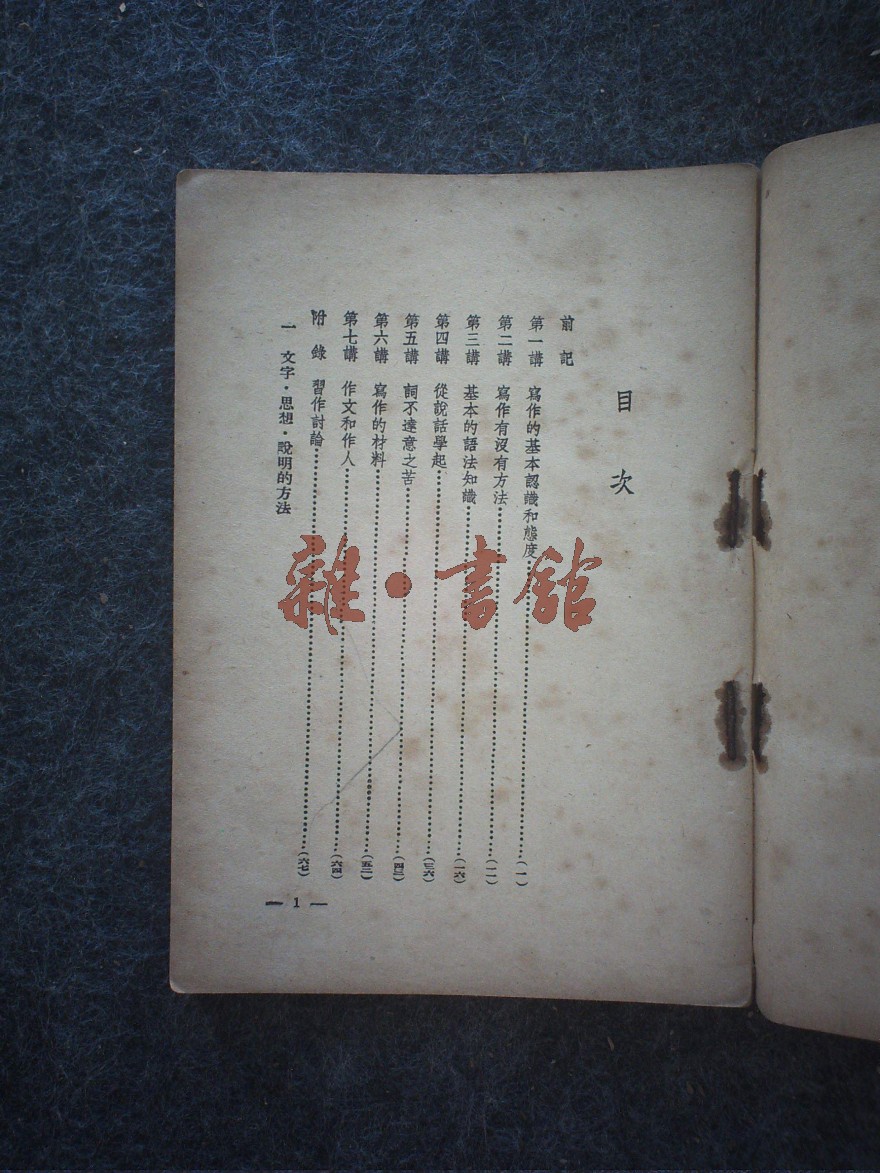 目次
前記
第一講 寫作的基本認識和態度……(一)
第二講 寫作有沒有方法……(一一)
第三講 基本的語法知識……(一六)
第四講 從說話學起……(三六)
第五講 詞不達意之苦……(四三)
第六講 寫作的材料……(五二)
第七講 作文和作人……(六四)
附錄 習作討論……(六七)
一 文字・思想・說明的方法
— 1 —
雜・書館